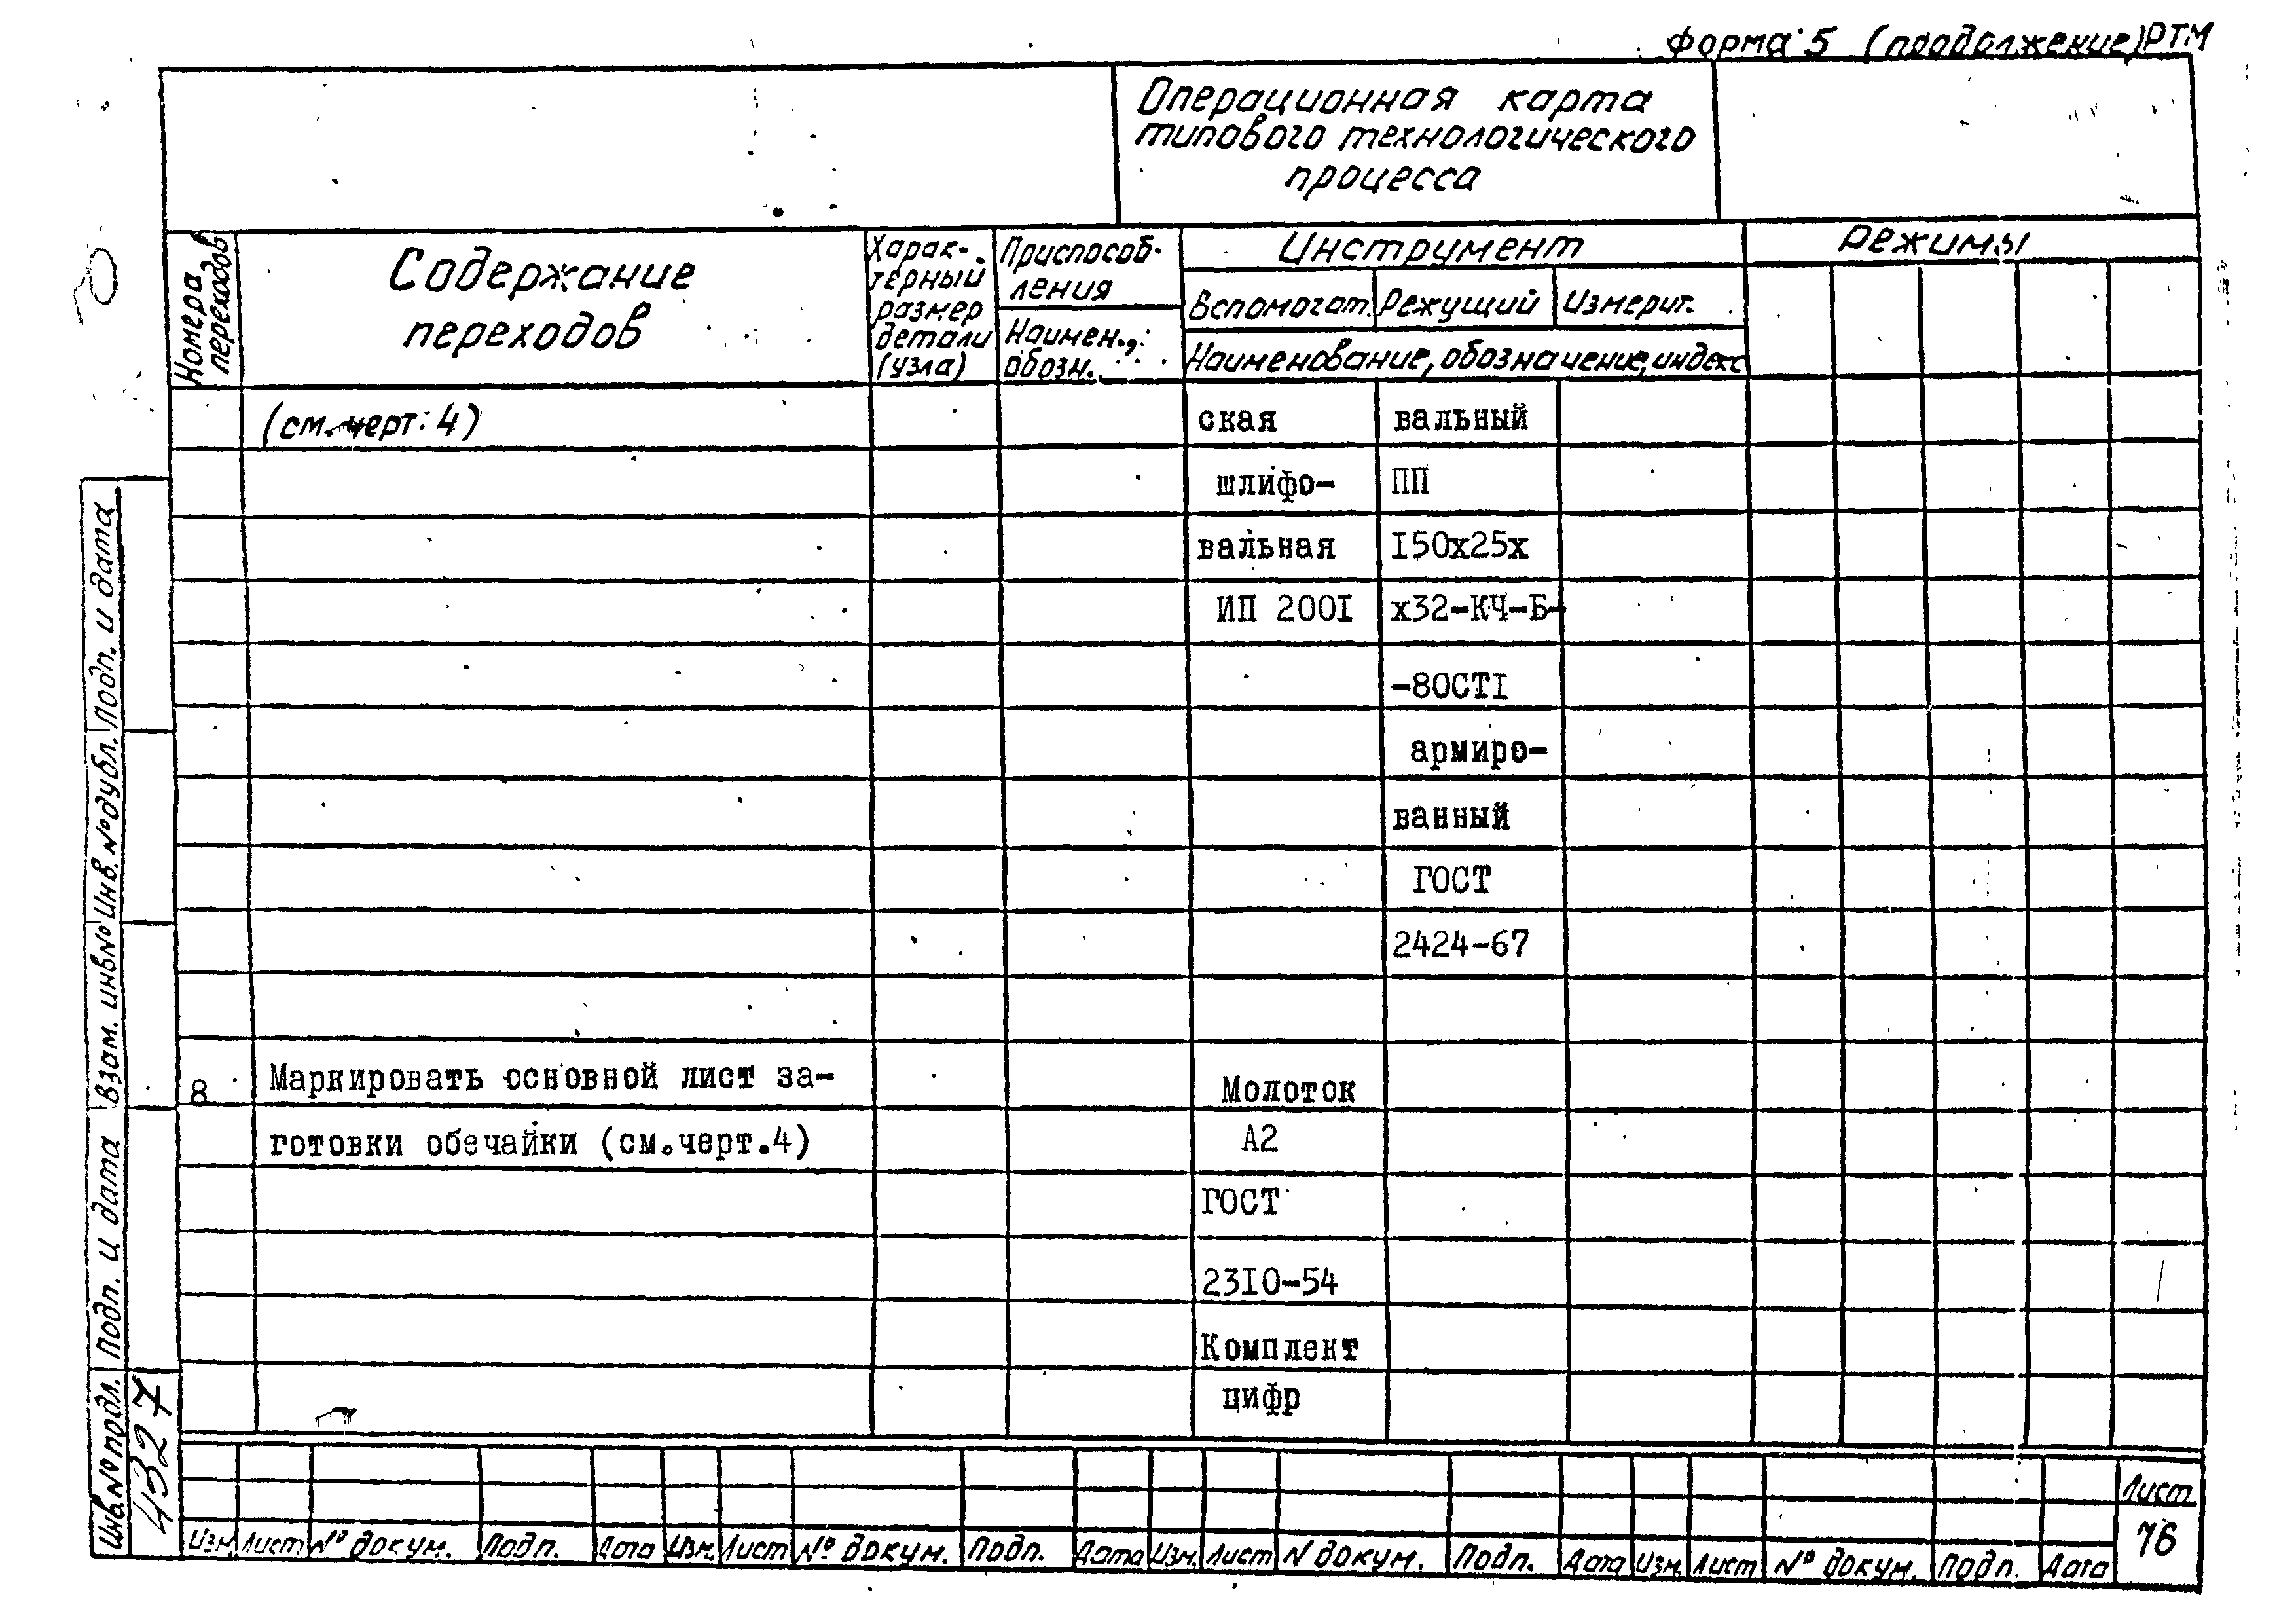 Форма 5 (продолжение) РТМ
Операционная карта
типового технологического
процесса
Номера
переходов
Содержание
переходов
Харак-
терный
размер
детали
(узла)
Приспособ-
ления
Наимен.,
обозн.
Инструмент
Вспомогат. Режущий Измерит.
Наименование, обозначение, индекс
Режимы
(см. черт. 4) ская вальный
шлифо- ПП
вальная I50х25х
ИП 200I х32-КЧ-Б-
-80СТI
армиро-
ванный
ГОСТ
2424-67
8 Маркировать основной лист за- Молоток
готовки обечайки (см.черт.4) А2
ГОСТ
23I0-54
Комплект
цифр
Подп. и дата
Инв. № дубл.
Взам. инв №
Подп. и дата
Инв № подл.
4327
Изм Лист № докум. Подп. Дата Изм. Лист № докум. Подп. Дата Изм. Лист N докум. Подп. Дата Изм. Лист № докум. Подп. Дата
Лист
76